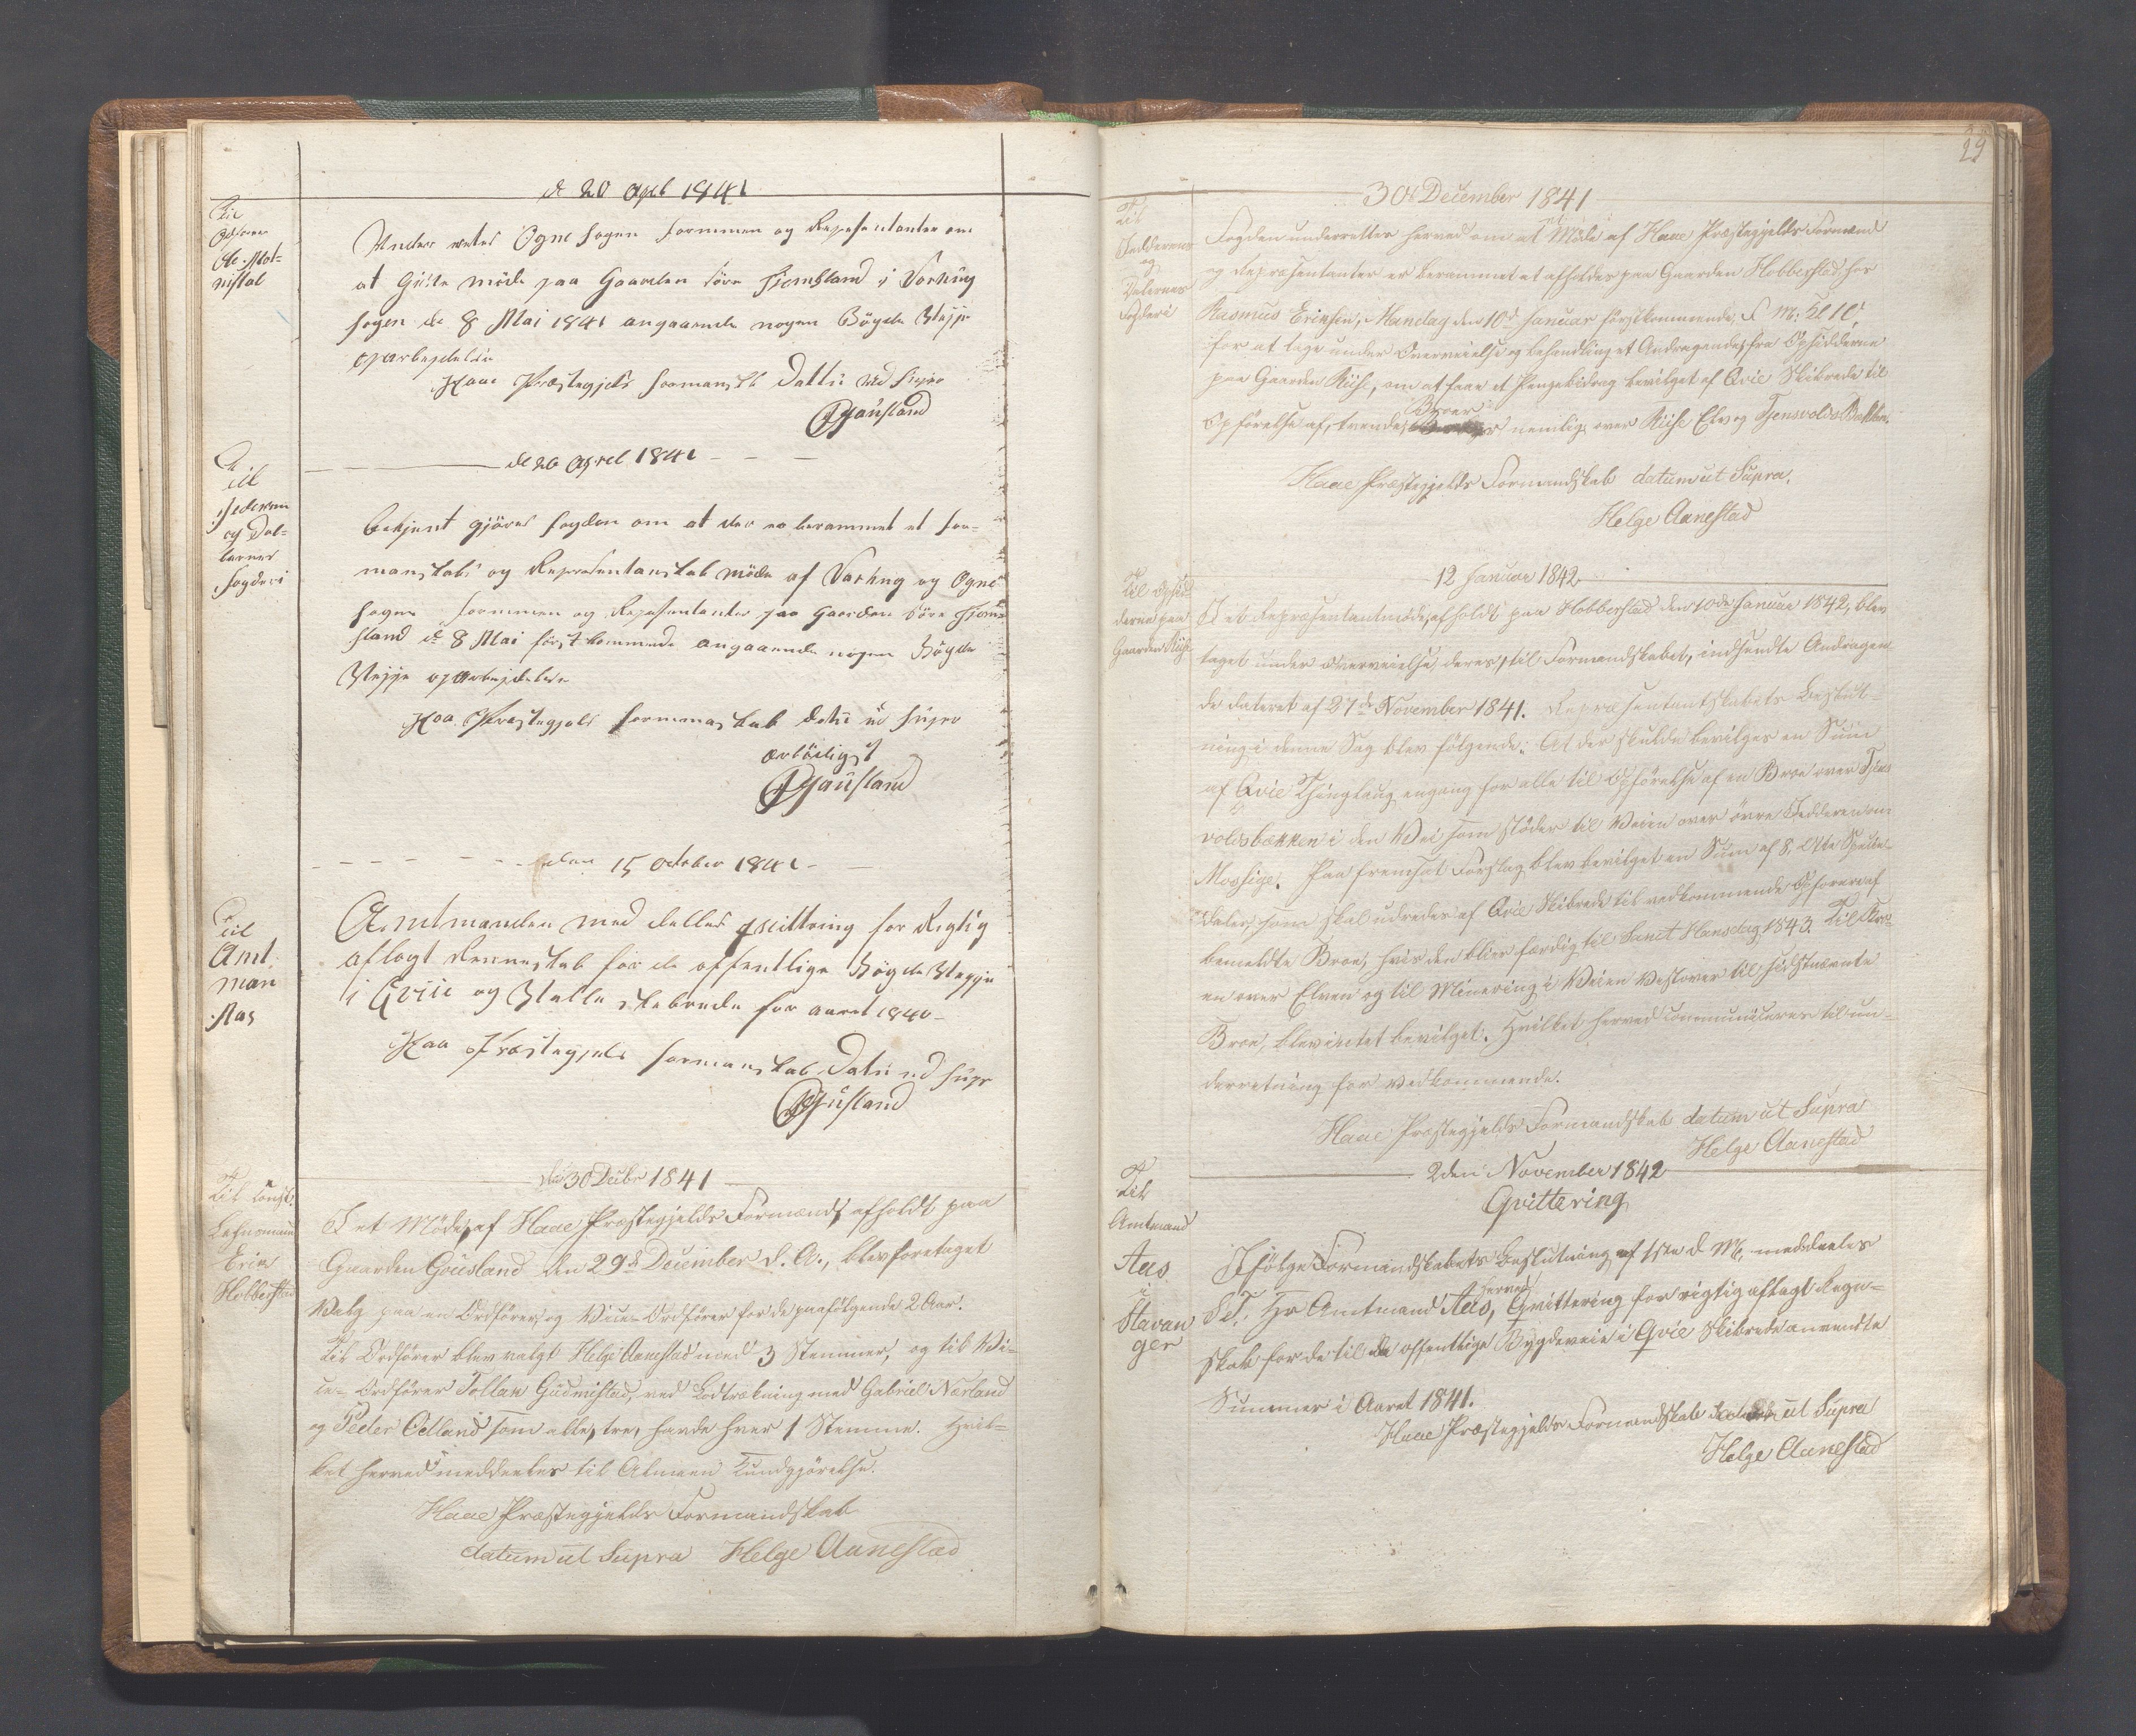 de 20 Apel 1841
Til
Ole Mot-
nistal
Under rettes Ogne Sogen Formmen og Repesentanter om
at Giste möde paa Gaarden Söre Hiemsland i Varhug
Sogen de 8 Mai 1841 angaaende nogen Bögde Weyje
oparbejdelse
Haae Præstegjels Formanskb Dattu ud Supro
Gausland
de 26 Apriel 1841
Til
Jederen
og Dal-
lernes
Fogderi
bekjent gjöres Fogden om at der er berammet et For-
manskabs og Representanskab möde af Varhug og Ogne
Sogen Formmen og Repesentanter paa Gaarden Söre Hiem-
sland d 8 Mai förstkommende angaaende nogen Bögde
Weyje oparbejdelse
Haa Præstegjels Formmanskab datu ud Supro
ærbödigst
Gausland
den 15 October 1841
Til
Amt
man
Aas
Amtmanden med delles qvittring for Rigtig
aflagt Renneskab for de offentlige Bögde Weyje
i Qviie og Natte skebrede for aaret 1840-
Haa Præstegjels Formanskab Datu ud Supr
Gausland
den 30 Decbr 1841
Til Const.
Lehnsmand
Eric
Hobberstad
I et Möde, af Haae Præstegjelds Formænd, afholdt paa
Gaarden Gousland den 29d December d. A., blev foretaget
Valg paa en Ordförer og Vice-Ordförer for de paafölgende 2 Aar.
Til Ordförer blev valgt Helge Aanestad med 3 Stemmer, og til Vi-
ce-Ordförer Tollak Gudmestad, ved Lodtrækning med Gabriel Nærland
og Peder Odland som alle, tre, havde hver 1 Stemme. Hvil-
ket herved meddeeles til Almeen Kundgjörelse.
Haae Præstegjelds Formandskab
datum ut Supra Helge Aanestad
29
30te December 1841
Til
Jedderens
og
Dalernes
Fogderi
Fogden underrettes herved om at et Möde af Haae Præstegjelds Formænd
og Repræsentanter er berammet at afholdes paa Gaarden Hobberstad, hos
Rasmus Eriksen, Mandag den 10de Januar förstkommende, F. M. Kl 10,
for at tage under Overveielse og behandling et Andragende, fra Opsidderne
paa Gaarden Riise, om at faae et Pengebidrag bevilget af Qvie Skibrede til
Opförelse af, trende, Broer nemlig over Riise Elv og Tjensvolds Bækken.
Haae Præstegjelds Formandskab datum ut Supra.
Helge Aanestad
12 Januar 1842
Til Opsid-
derne paa
Gaarden Riise
I et Repræsentantmöde, afholdt paa Hobberstad den 10de Januar 1842, blev
taget under overveielse deres, til Formandskabet, indsendte Andragen-
de dateret af 27de November 1841. Repræsentantskabets beslut-
ning i denne Sag blev fölgende: At der skulde bevilges en Sum
af Qvie Thinglaug engang for alle til Opförelse af en Broe over Tjens-
voldsbækken i den Vei som stöder til Veien over övre Jedderen om
Mossige. Paa fremsat Forslag blev bevilget en Sum af 8. Otte Specie-
daler, som skal udredes af Qvie Skibrede til vedkommende Opförer af
bemeldte Broe, hvis den bliver færdig til Sanct Hansdag 1843. Til Bro-
en over Elven og til Minering i Veien Vestover til sidstnævnte
Broe, blev intet bevilget. Hvilket herved communiceres til un-
derretning for vedkommende.
Haae Præstegjelds Formandskab datum ut Supra
Helge Aanestad
2den November 1842
Qvittering
Til
Amtmand
Aas
i
Stavan
ger
Ifölge Formandskabets beslutning af 1ste d. M. meddeeles
S. T. Hr Amtmand Aas, herved Qvittering for rigtig aflagt Regn-
skab for de til de offentlige Bygdeveie i Qvie Skibrede anvendte
Summer i Aaret 1841.
Haae Præstegjelds Formandskab datum ut Supra
Helge Aanestad